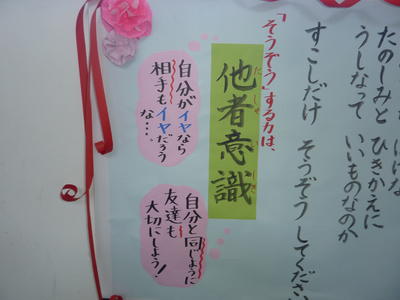 たのしみと ひきかえに
うしなって いいものなのか
すこしだけ そうぞう してください
「そうぞう」する力は、
他者意識
自分がイヤなら
相手もイヤだろう
な・・・・
自分と同じように
友達も
大切にしよう!